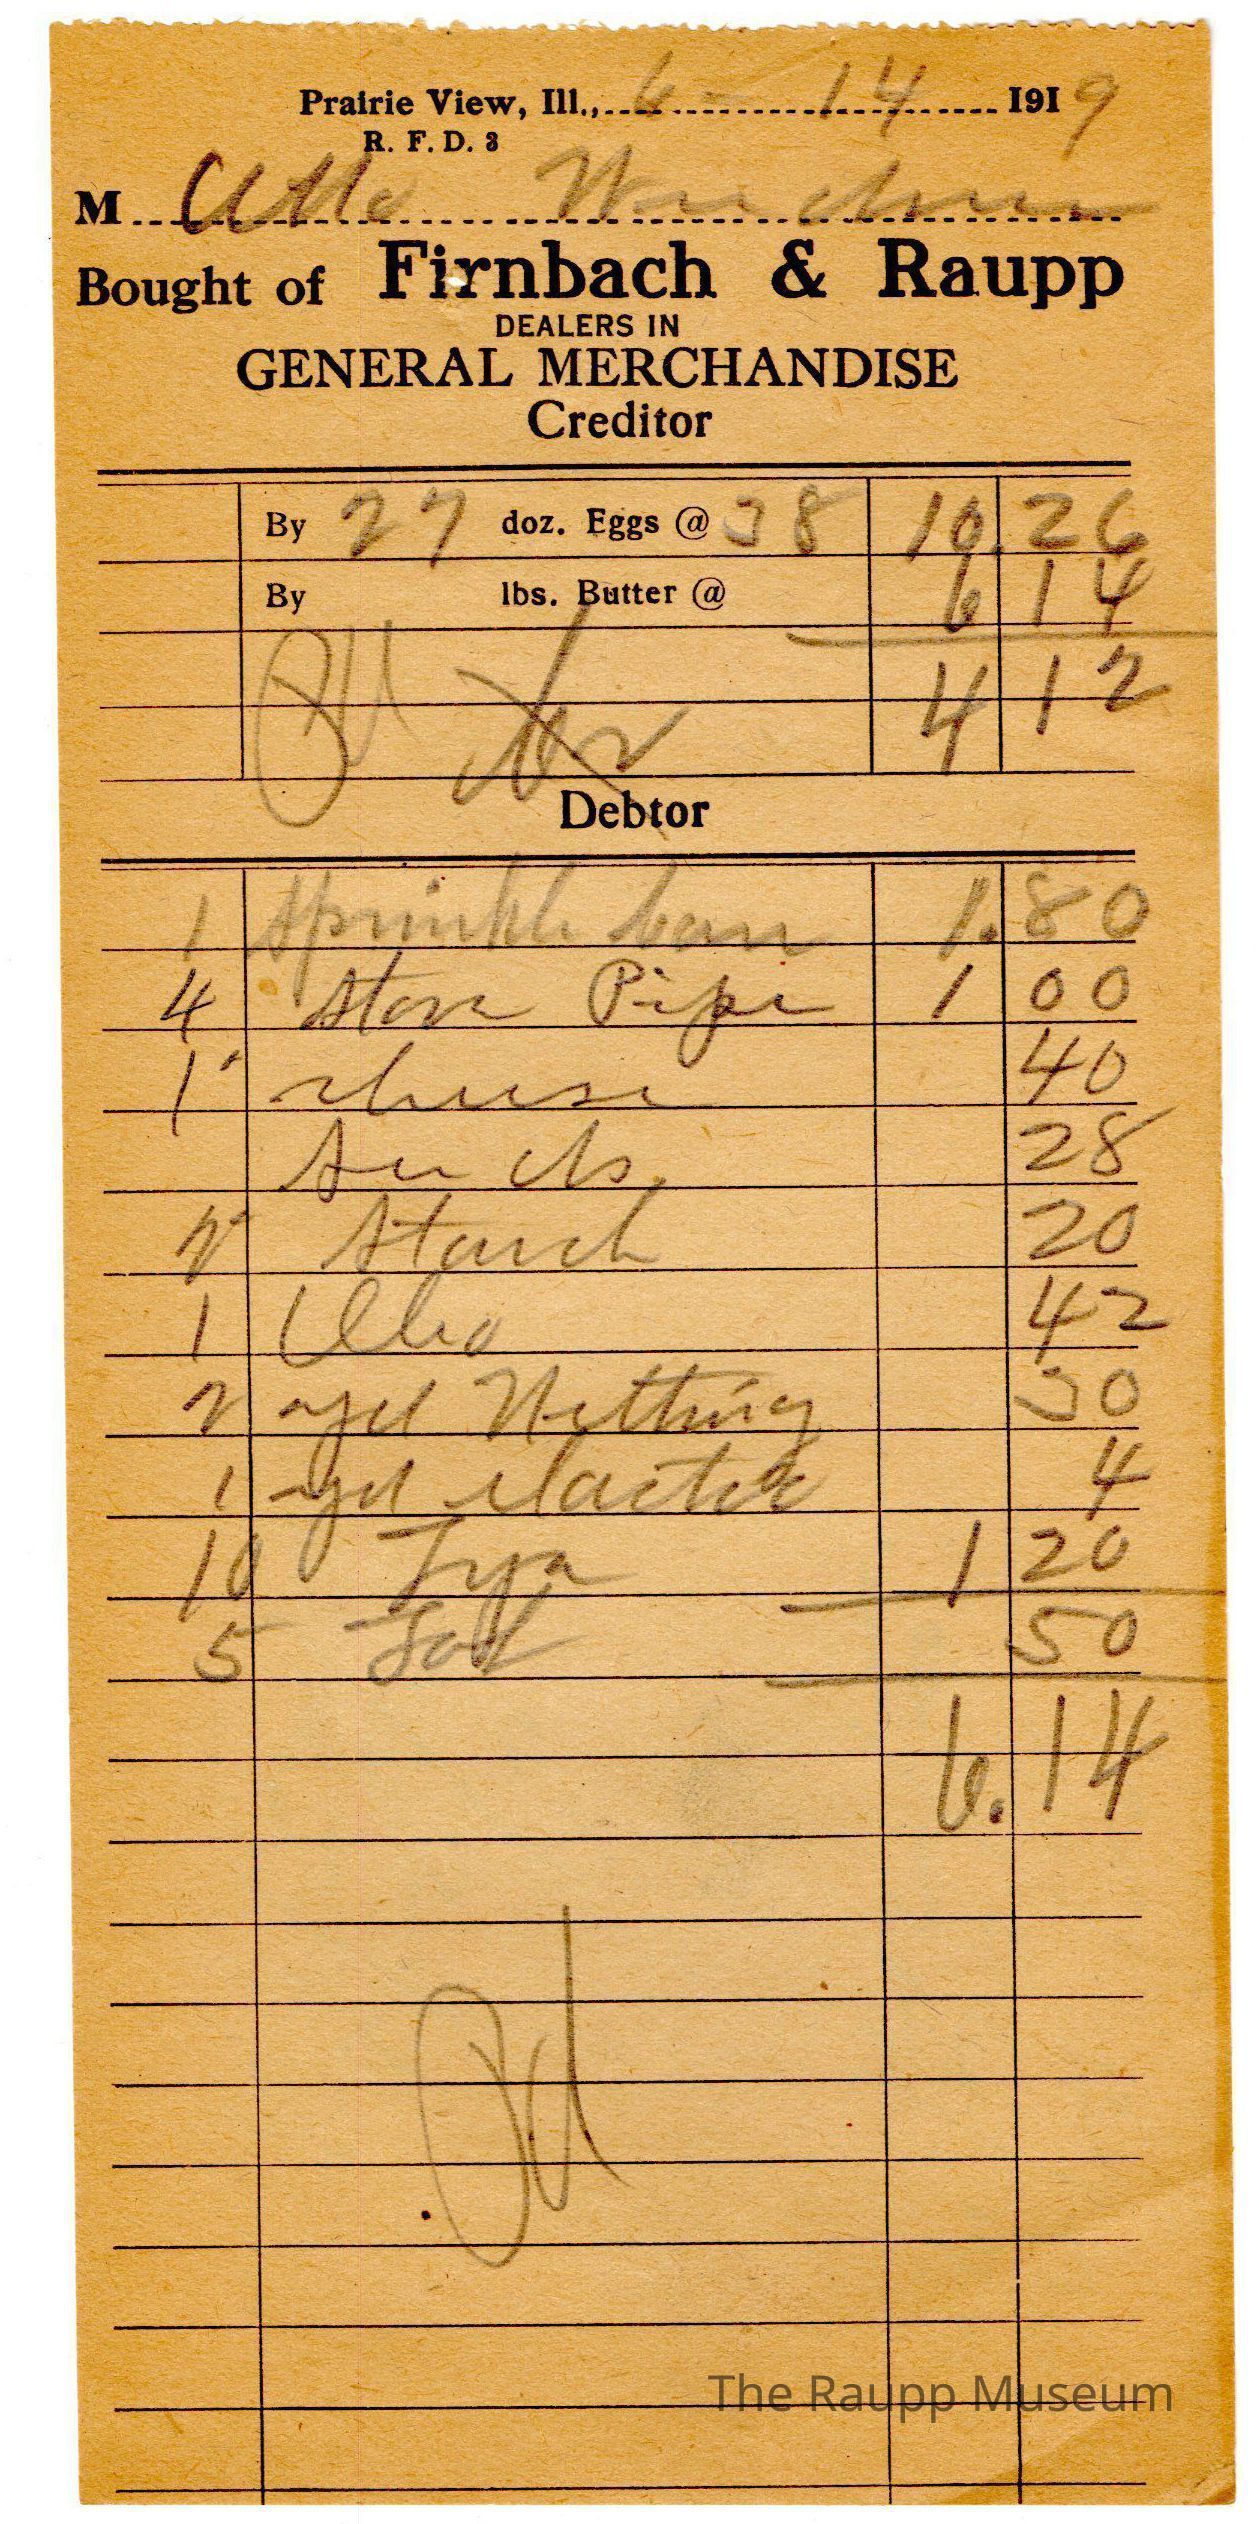 Prairie View, Ill., 6 - 14 1919
R. F. D. 3
M Otto
Bought of Firnbach & Raupp
DEALERS IN
GENERAL MERCHANDISE
Creditor
By 27 doz. Eggs @ 38 10.26
By lbs. Butter @ 6 14
Pd 4 12
Debtor
1 Sprinkle can 1.80
4 Stove Pipe 1 00
1 cheese 40
28
2 Starch 20
1 Oleo 42
2 yd Netting 30
1 yd elastic 4
10 1 20
5 50
6.14
Pd
The Raupp Museum